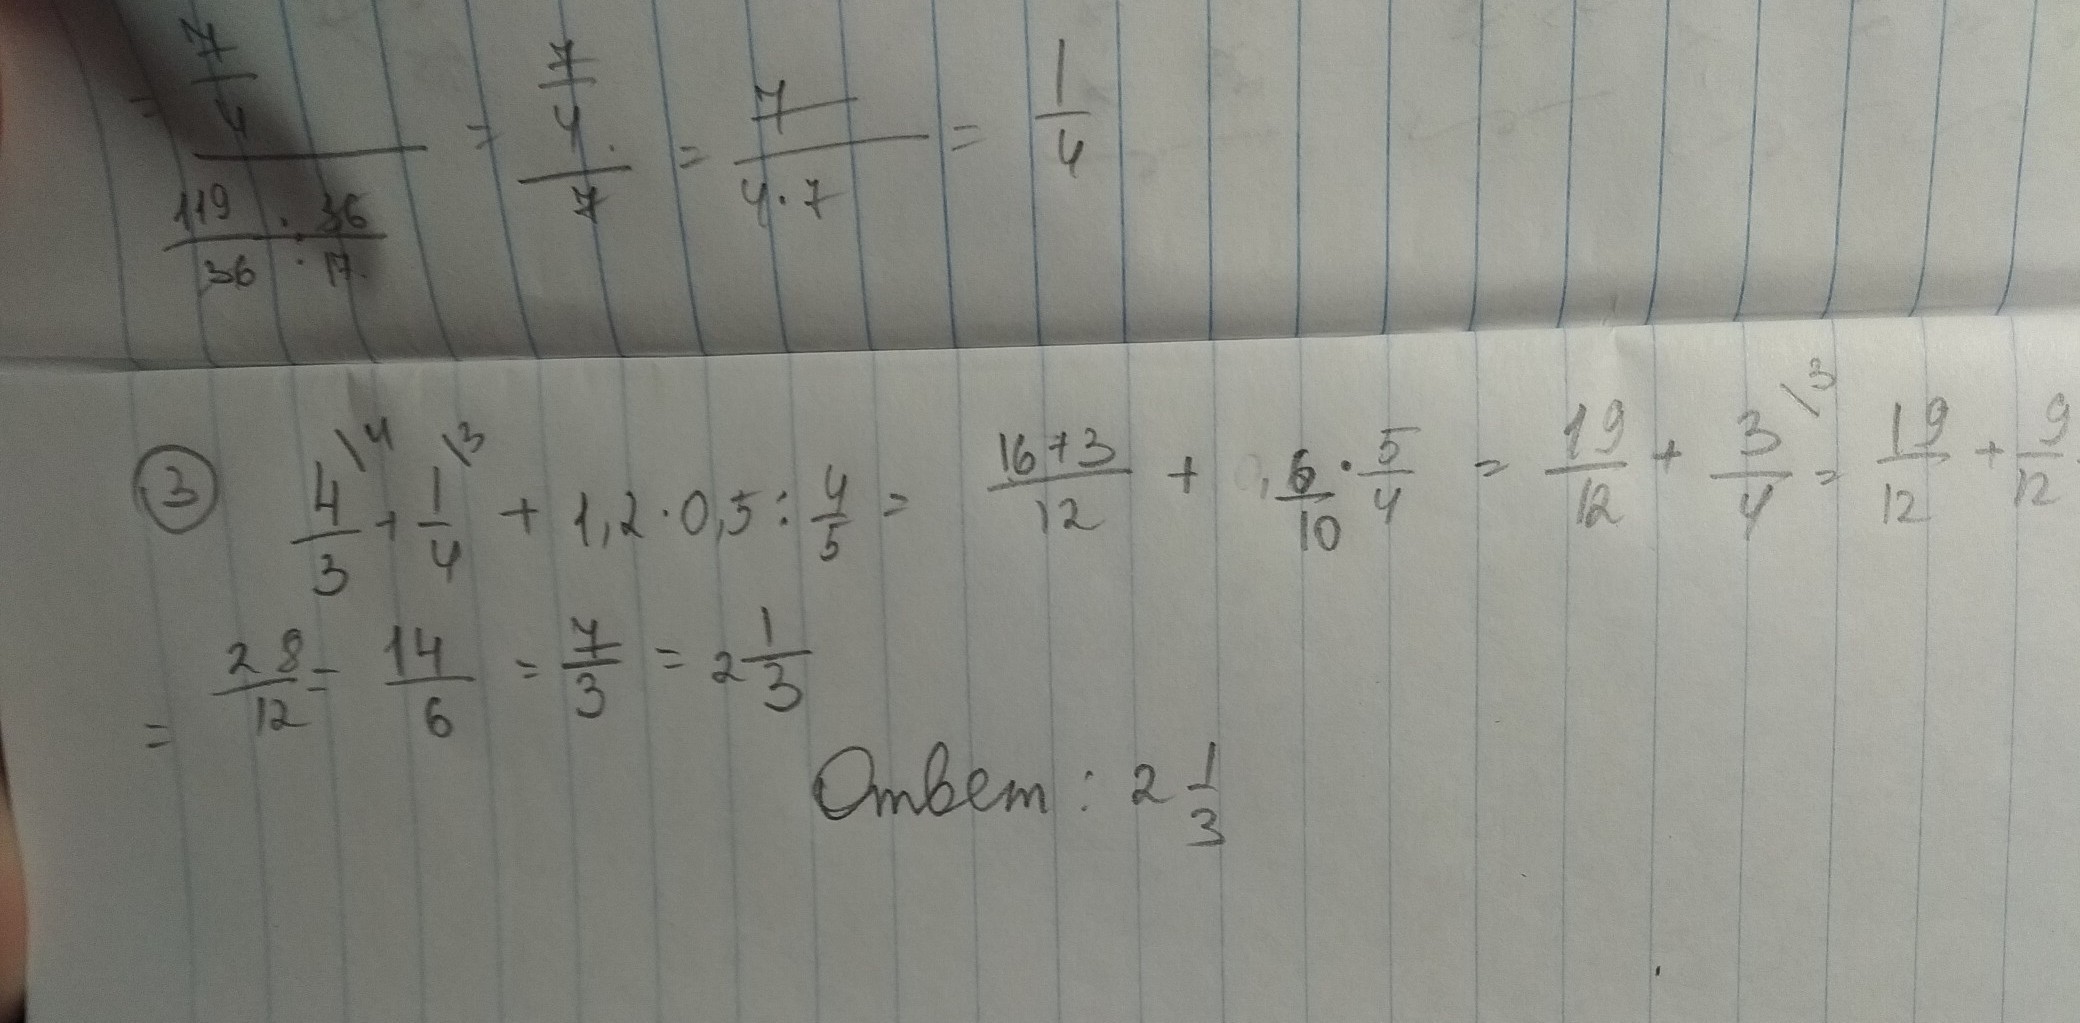 = 7/4 / (119/36 · 36/17) = 7/4 / 7 = 7 / (4·7) = 1/4
③ 4/3 \4 + 1/4 \3 + 1,2 · 0,5 : 4/5 = (16+3)/12 + 6/10 · 5/4 = 19/12 + 3/4 \3 = 19/12 + 9/12
= 28/12 = 14/6 = 7/3 = 2 1/3
Ответ: 2 1/3